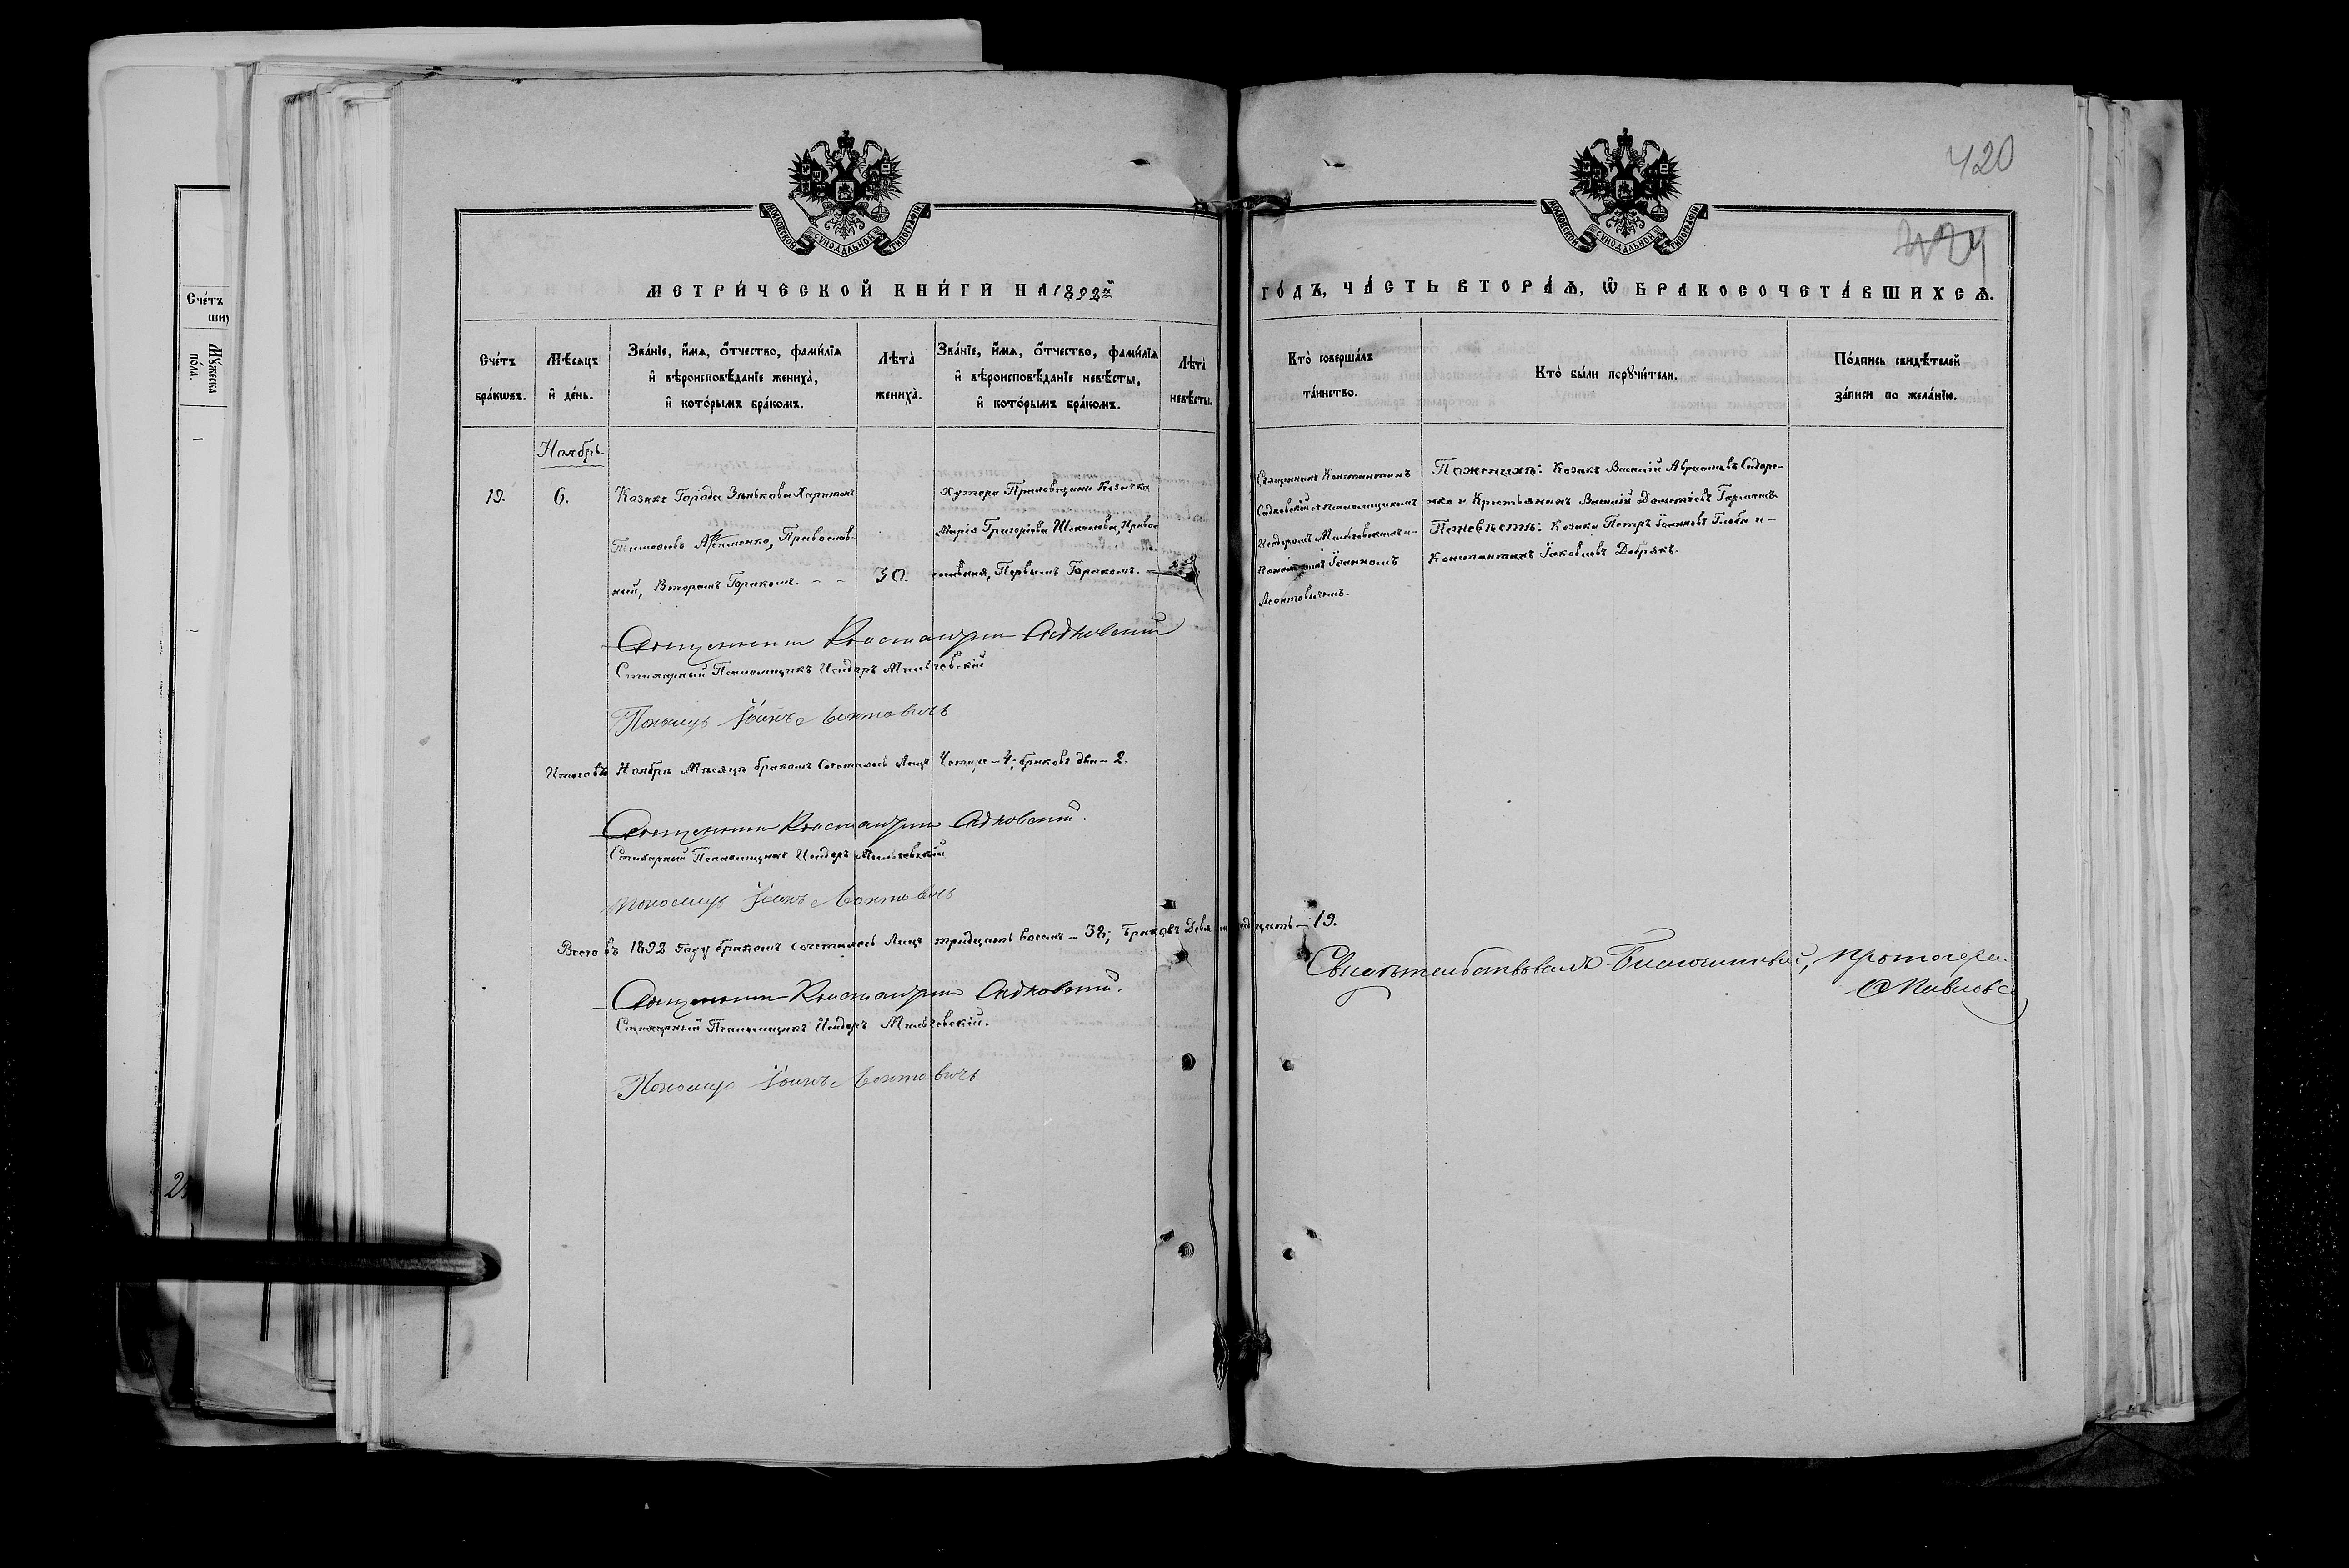 420
МОСКОВСКОЙ СѴНОДАЛЬНОЙ ТИПОГРАФІИ
МОСКОВСКОЙ СѴНОДАЛЬНОЙ ТИПОГРАФІИ
МЕТРИ́ЧЕСКОЙ КНИ́ГИ НА 1892й
ГО́ДЪ, ЧА́СТЬ ВТОРА́Ѧ, Ѿ БРАКОСОЧЕТА́ВШИХСѦ.
Сче́тъ бра́кѡвъ.
Мѣ́сѧцъ и҆ де́нь.
Зва́нїе, и҆́мѧ, ѻ҆́тчество, фами́лїѧ
и҆ вѣроисповѣ́данїе жениха̀,
и҆ кото́рымъ бра́комъ.
Лѣта̀ жениха̀.
Зва́нїе, и҆́мѧ, ѻ҆́тчество, фами́лїѧ
и҆ вѣроисповѣ́данїе невѣ́сты,
и҆ кото́рымъ бра́комъ.
Лѣта̀ невѣ́сты.
Кто̀ соверша́лъ
та́инство.
Кто̀ бы́ли порꙋчи́тели.
По́дпись свидѣ́телей
за́писи по жела́нїю.
Сче́тъ
Мꙋ́жеска по́ла.
Ноябрь.
19.
6.
Козакъ Города Зѣнькова Харитонъ
Тимофеевъ Артименко, Православ-
ный, Вторымъ бракомъ.
30.
Хутора козачка
Марія Григоріева Правос-
лавная, Первымъ бракомъ.
Священникъ Константинъ
Садковскій съ псаломщикомъ
Исидоромъ и
Пономаремъ Іоанномъ
Леонтовичемъ.
По женихѣ: Козакъ Василій Авраамовъ Сидоре-
нко и Крестьянинъ Василій
По невѣстѣ: Козаки Петръ Іоанновъ и
Константинъ Іаковлевъ Добрякъ.
Священникъ Константинъ Садковскій
Стихарный Псаломщикъ Исидоръ
Пономарь Іоаннъ Леонтовичъ
Итого въ Ноябрѣ Мѣсяцѣ бракомъ сочеталось Лицъ Четыре – 4; браковъ два – 2.
Священникъ Константинъ Садковскій.
Стихарный Псаломщикъ Исидоръ
Пономарь Іоаннъ Леонтовичъ
Всего въ 1892 Году бракомъ сочеталось Лицъ тридцать восемь – 38; браковъ Девятнадцать – 19.
Священникъ Константинъ Садковскій.
Стихарный Псаломщикъ Исидоръ
Пономарь Іоаннъ Леонтовичъ
Свидѣтельствовалъ Благочинный, протоіерей
Павловскій